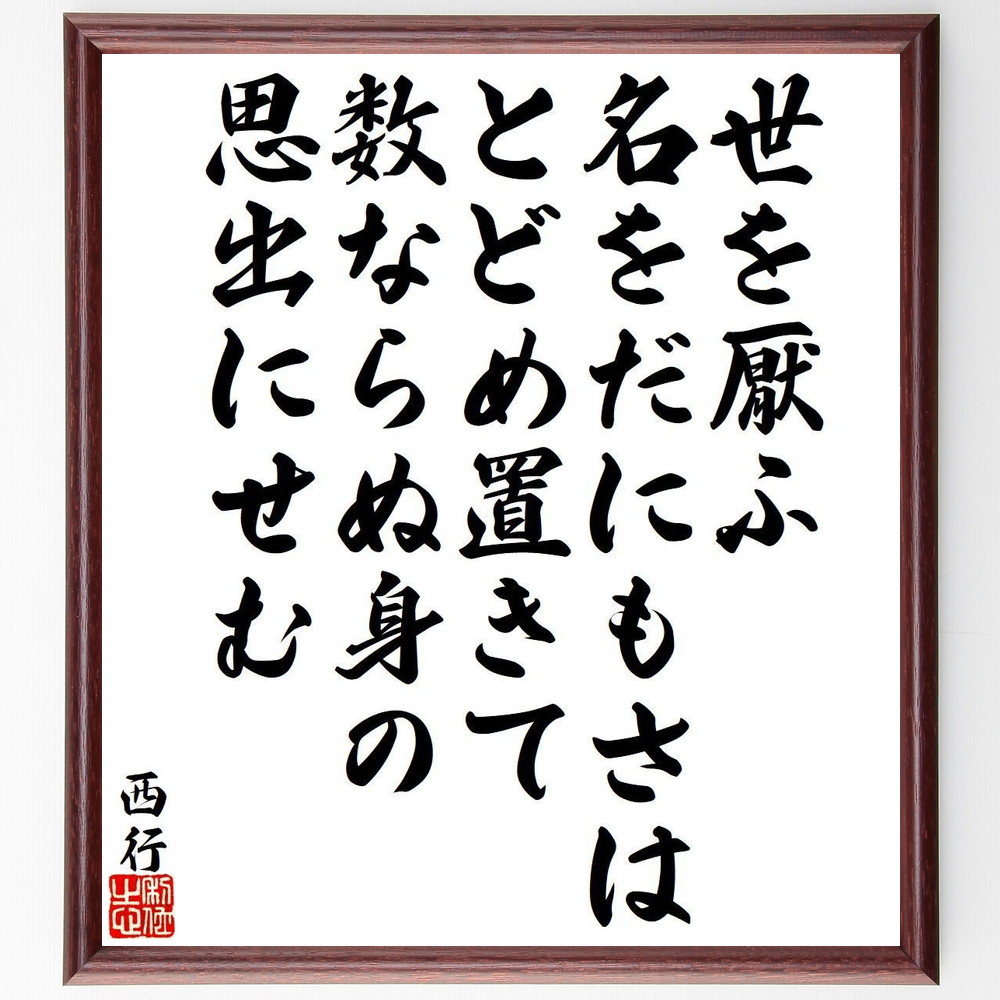 世を厭ふ
名をだにもさは
とどめ置きて
数ならぬ身の
思出にせむ
西行